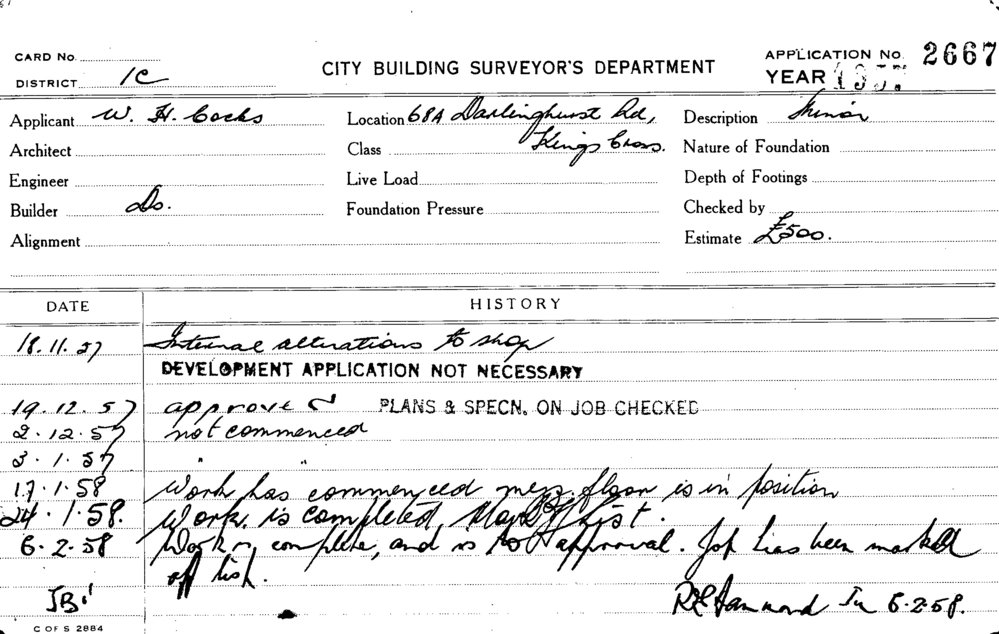 CARD No.
DISTRICT 1C
CITY BUILDING SURVEYOR'S DEPARTMENT
APPLICATION No. 2667
YEAR 1957
Applicant W. H. Cocks
Location 68A Darlinghurst Rd,
Description Minor
Architect
Class Kings Cross.
Nature of Foundation
Engineer
Live Load
Depth of Footings
Builder Do.
Foundation Pressure
Checked by
Alignment
Estimate £500.
DATE HISTORY
18.11.57 Internal alterations to shop
DEVELOPMENT APPLICATION NOT NECESSARY
19.12.57 approve PLANS & SPECN. ON JOB CHECKED
2.12.57 not commenced
3.1.57 " "
17.1.58 Work has commenced mezz. floor is in position
24.1.58. Work is completed, Mark off list.
6.2.58 Work is complete, and is to approval. Job has been marked
off list.
JB
R Hammond 6.2.58.
C OF S 2884